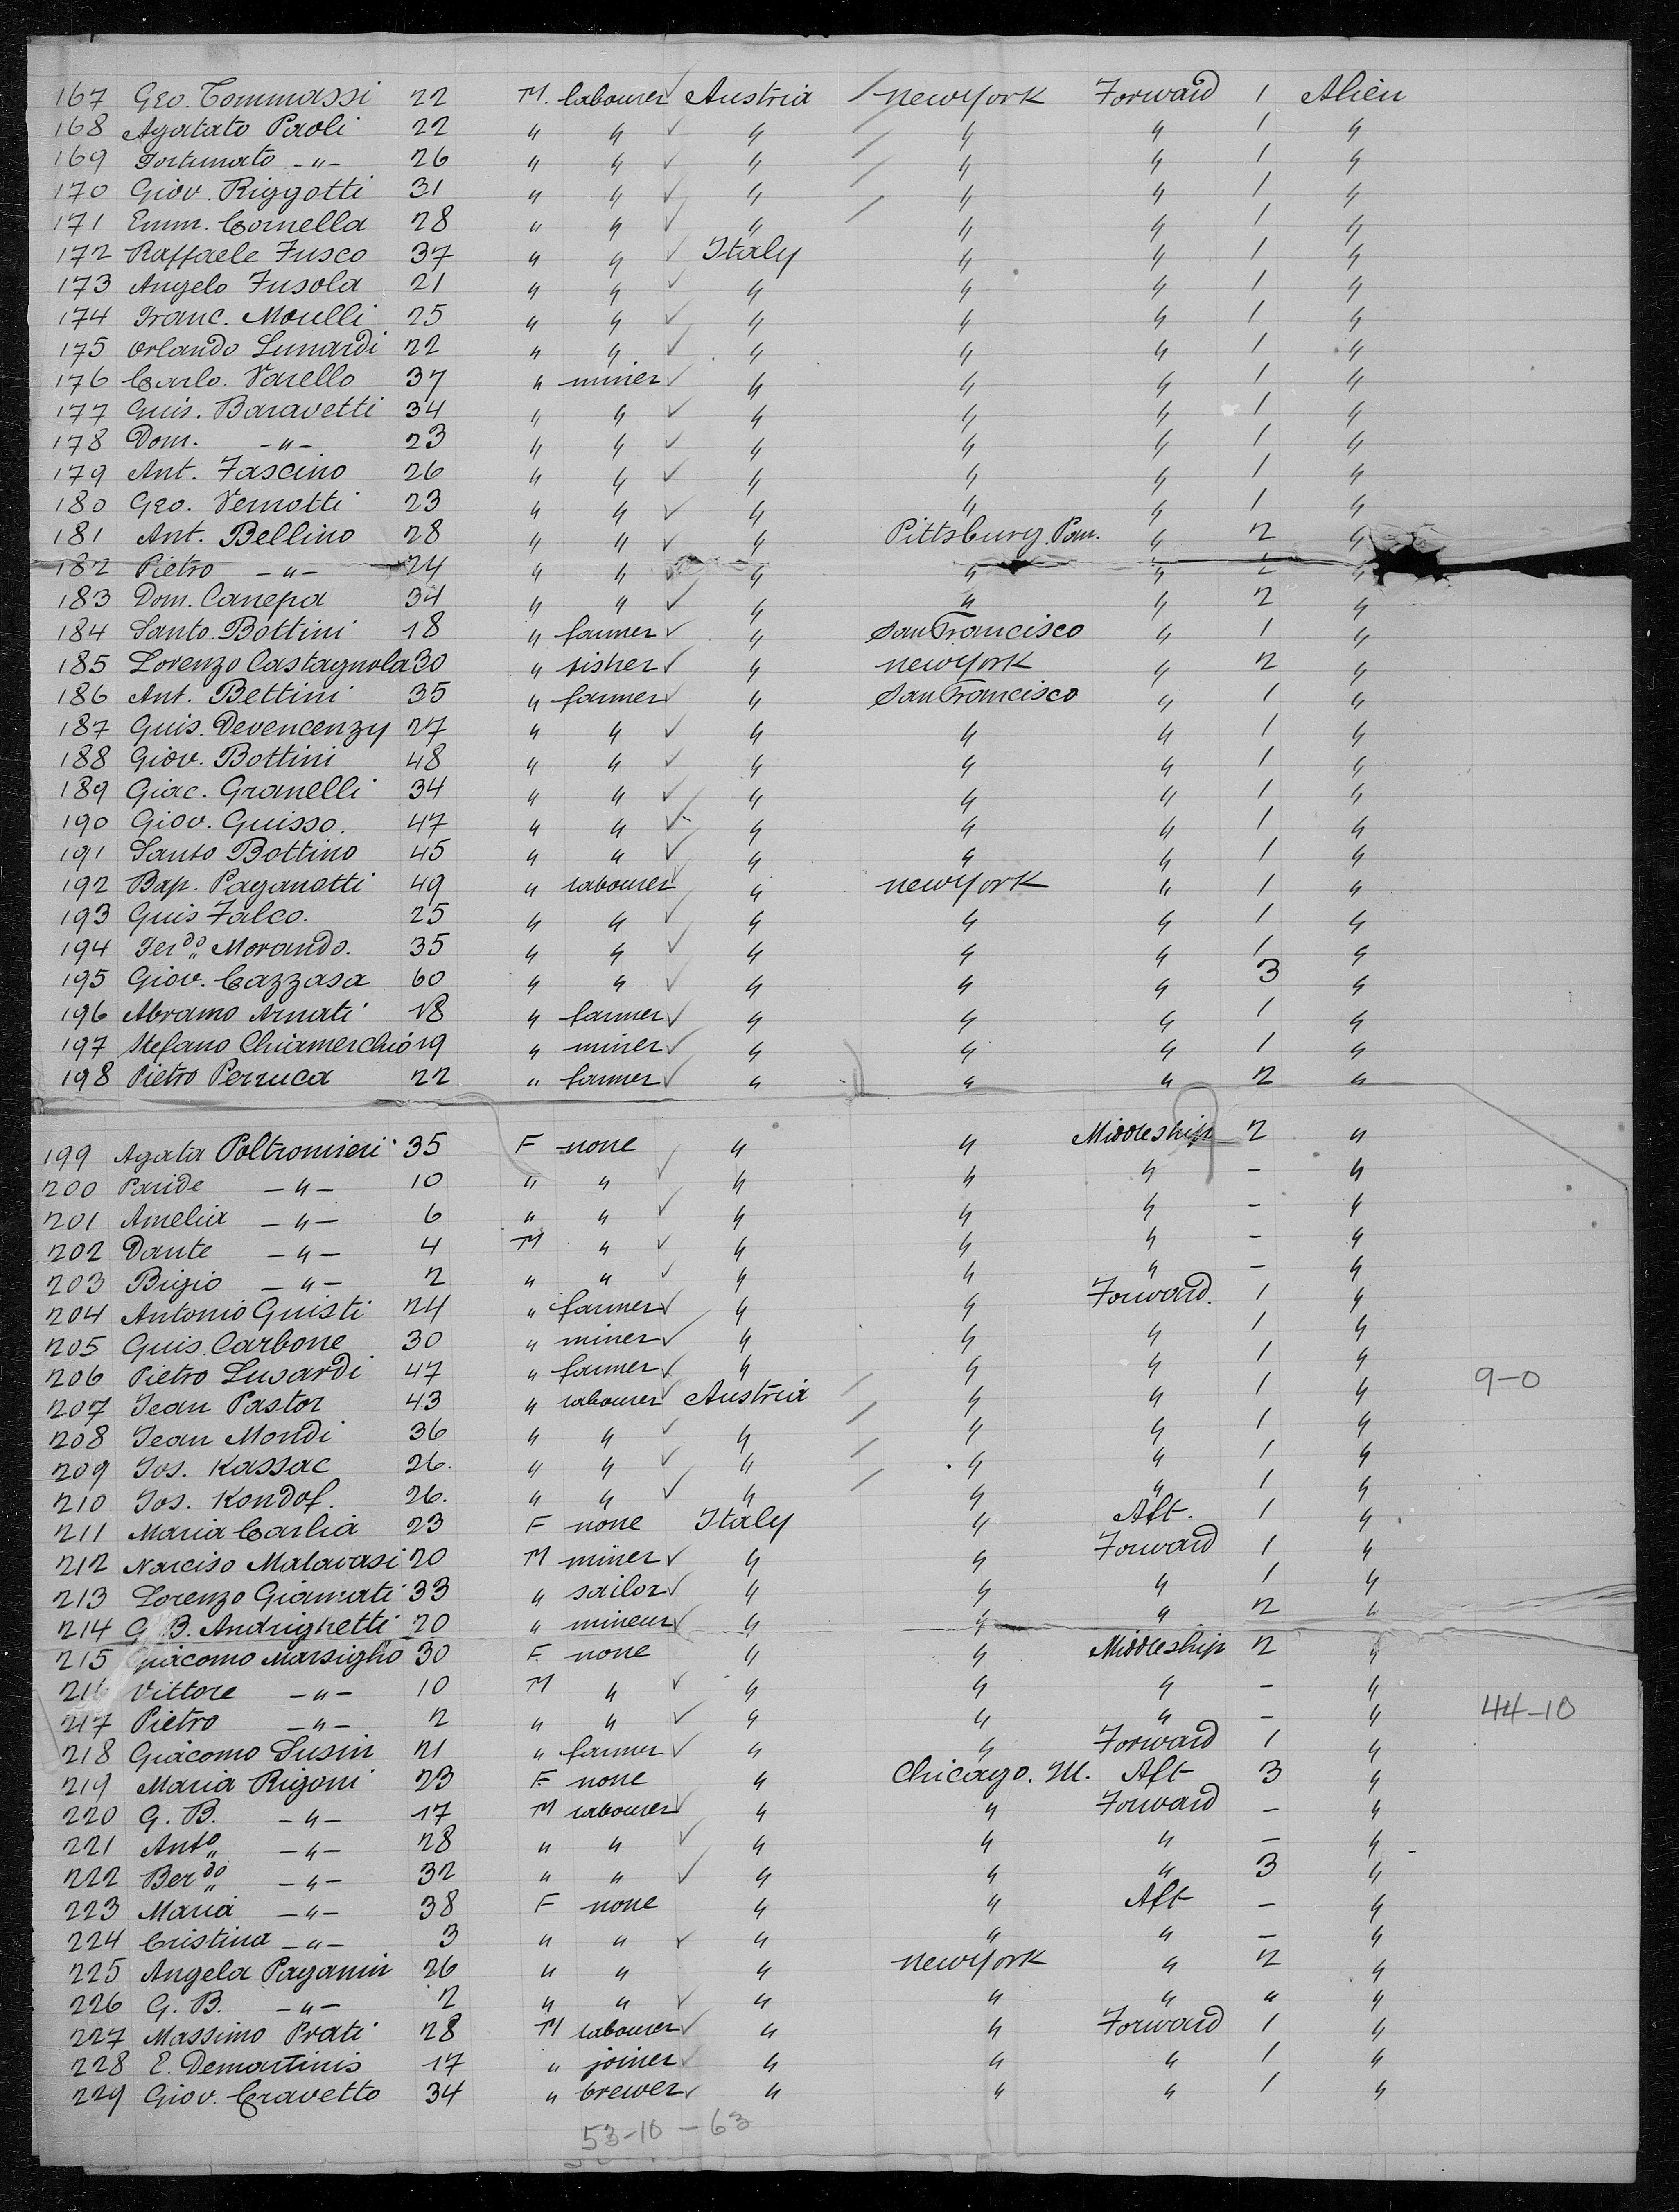 167 Geo. Tommassi 22 M. labourer Austria New York Forward 1 Alien
168 Agatato Paoli 22 " " " " " 1 "
169 Fortunato -"- 26 " " " " " 1 "
170 Giov. Riggotti 31 " " " " " 1 "
171 Emm. Cornella 28 " " " " " 1 "
172 Raffaele Fusco 37 " " Italy " " 1 "
173 Angelo Fusola 21 " " " " " 1 "
174 Franc. Morelli 25 " " " " " 1 "
175 Orlando Lunardi 22 " " " " " 1 "
176 Carlo. Varello 37 " miner " " " 1 "
177 Guis. Baravetti 34 " " " " " 1 "
178 Dom. -"- 23 " " " " " 1 "
179 Ant. Fascino 26 " " " " " 1 "
180 Geo. Vernotti 23 " " " " " 1 "
181 Ant. Bellino 28 " " " Pittsburg Pen. " 2 "
182 Pietro -"- 24 " " " " " 2 "
183 Dom. Canepa 34 " " " " " 2 "
184 Santo Bottini 18 " farmer " San Francisco " 1 "
185 Lorenzo Castagnola 30 " fisher " New York " 2 "
186 Ant. Bettini 35 " farmer " San Francisco " 1 "
187 Guis. Devencenzy 27 " " " " " 1 "
188 Giov. Bottini 48 " " " " " 1 "
189 Giac. Granelli 34 " " " " " 1 "
190 Giov. Guisso. 47 " " " " " 1 "
191 Santo Bottino 45 " " " " " 1 "
192 Bap. Paganetti 49 " labourer " New York " 1 "
193 Guis Falco. 25 " " " " " 1 "
194 Ferdo Morando. 35 " " " " " 1 "
195 Giov. Cazzasa 60 " " " " " 3 "
196 Abramo Arnati 18 " farmer " " " 1 "
197 Stefano Chiamerchio 19 " miner " " " 1 "
198 Pietro Perruca 22 " farmer " " " 2 "
199 Agata Poltronieri 35 F none " " Middleship 2 "
200 Paride -"- 10 " " " " " - "
201 Amelia -"- 6 " " " " " - "
202 Dante -"- 4 M " " " " - "
203 Bigio -"- 2 " " " " " - "
204 Antonio Guisti 24 " farmer " " Forward. 1 "
205 Guis. Carbone 30 " miner " " " 1 "
206 Pietro Lusardi 47 " farmer " " " 1 " 9-0
207 Jean Pastor 43 " labourer Austria " " 1 "
208 Jean Mondi 36 " " " " " 1 "
209 Jos. Kassac 26. " " " " " 1 "
210 Jos. Kondof. 26. " " " " " 1 "
211 Maria Carlia 23 F none Italy " Aft. 1 "
212 Narciso Malavasi 20 M miner " " Forward 1 "
213 Lorenzo Giamati 33 " sailor " " " 1 "
214 G. B. Andrighetti 20 " mineur " " " 2 "
215 Giacomo Marsiglio 30 F none " " Middleship 2 "
216 Vittore -"- 10 M " " " " - "
217 Pietro -"- 2 " " " " " - " 44-10
218 Giacomo Susin 21 " farmer " " Forward 1 "
219 Maria Rigoni 23 F none " Chicago. Ill. Aft 3 "
220 G. B. -"- 17 M labourer " " Forward - "
221 Anto -"- 28 " " " " " - "
222 Berdo -"- 32 " " " " " 3 "
223 Maria -"- 38 F none " " Aft - "
224 Cristina -"- 3 " " " " " - "
225 Angela Paganin 26 " " " New York " 2 "
226 G. B. -"- 2 " " " " " " "
227 Massimo Prati 28 M labourer " " Forward 1 "
228 E. Demartinis 17 " joiner " " " 1 "
229 Giov. Cravetto 34 " brewer " " " 1 "
53-10-63